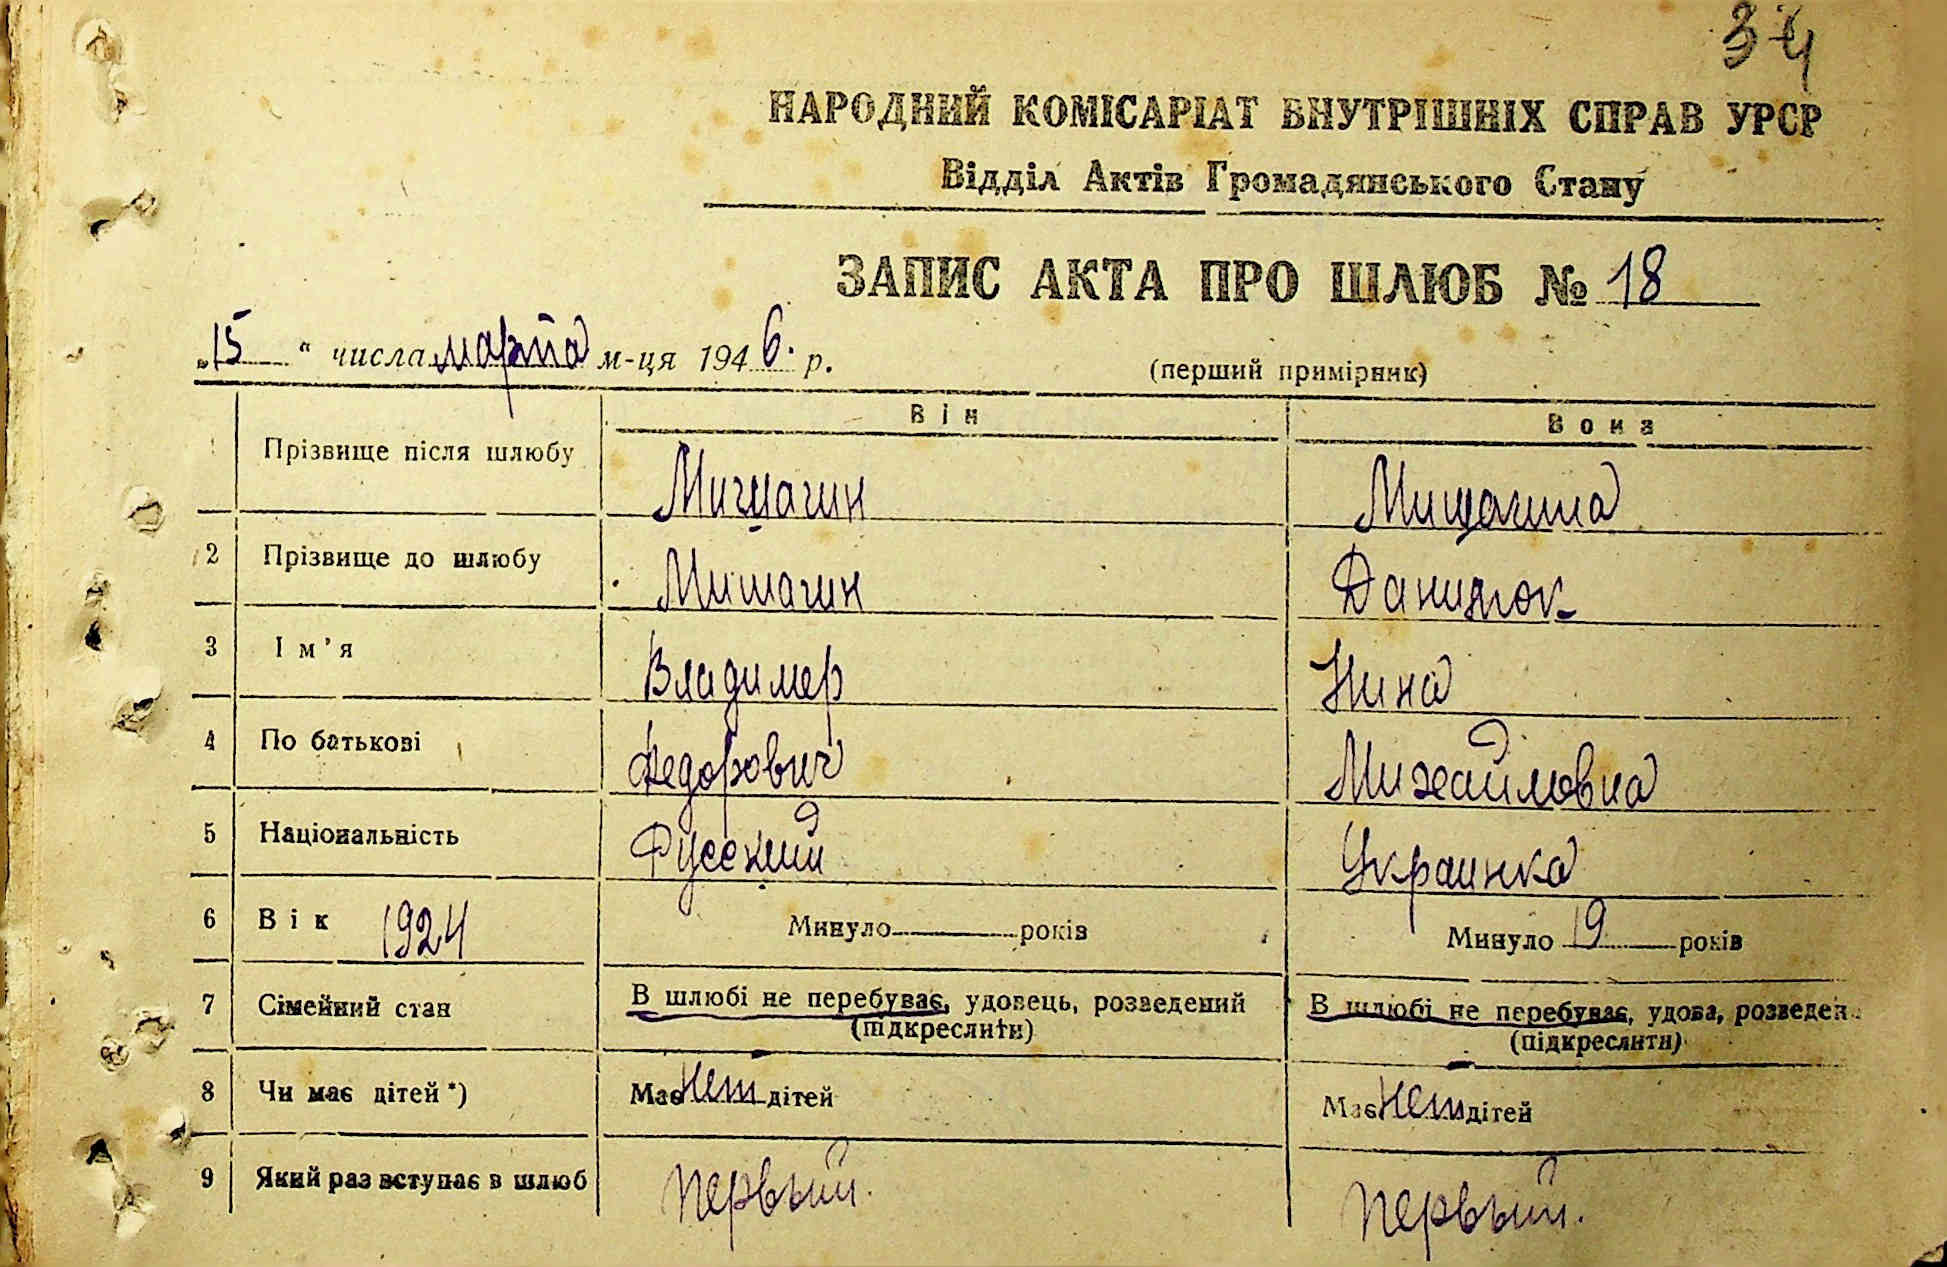 34
НАРОДНИЙ КОМІСАРІАТ ВНУТРІШНІХ СПРАВ УРСР
Відділ Актів Громадянського Стану
ЗАПИС АКТА ПРО ШЛЮБ № 18
„15 “ числа марта м-ця 1946. р.
(перший примірник)
Він Вона
1 Прізвище після шлюбу Мишагин Мишагина
2 Прізвище до шлюбу Мишагин Данилюк
3 Ім'я Владимер Нина
4 По батькові Федорович Михайловна
5 Національність Русский Украинка
6 Вік 1924 Минуло років Минуло 19 років
7 Сімейний стан В шлюбі не перебуває, удовець, розведений В шлюбі не перебуває, удова, розведен
(підкреслити) (підкреслити)
8 Чи має дітей *) Має нет дітей Має нет дітей
9 Який раз вступає в шлюб первый. первый.